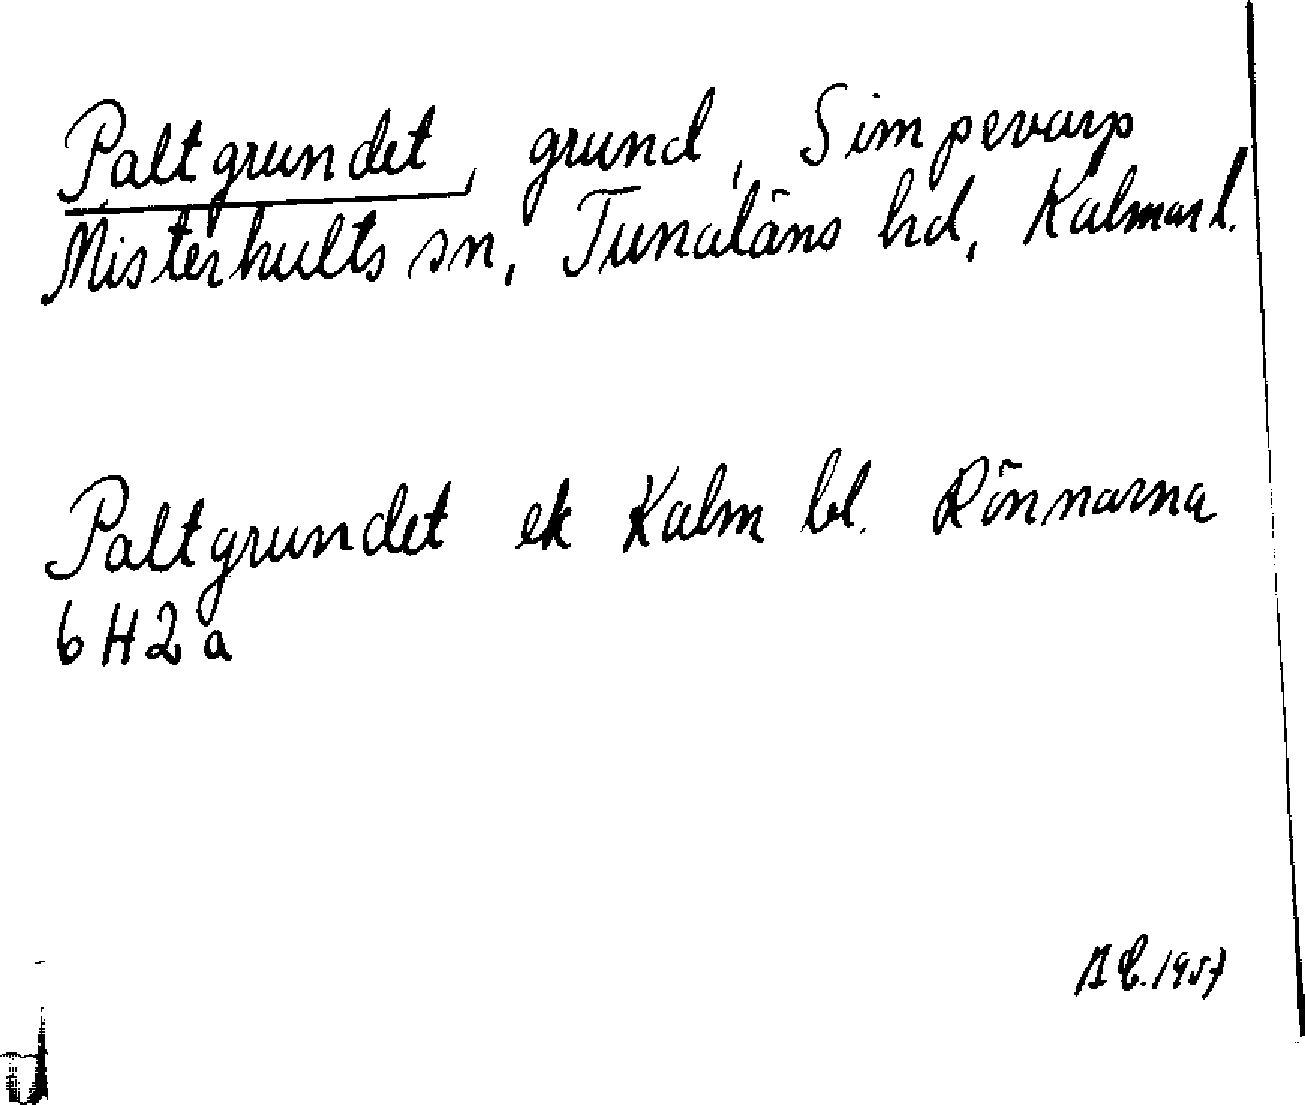 Paltgrundet, grund, Simpevarp
Misterhults sn, Tunaläns hd, Kalmar l.
Paltgrundet ek Kalm bl. Rönnarna
6H2a
1957